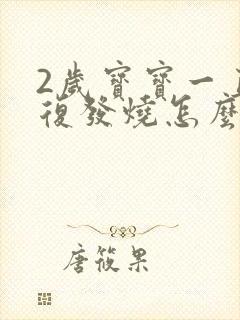 2歲寶寶一
復發燒怎麼
唐筱果